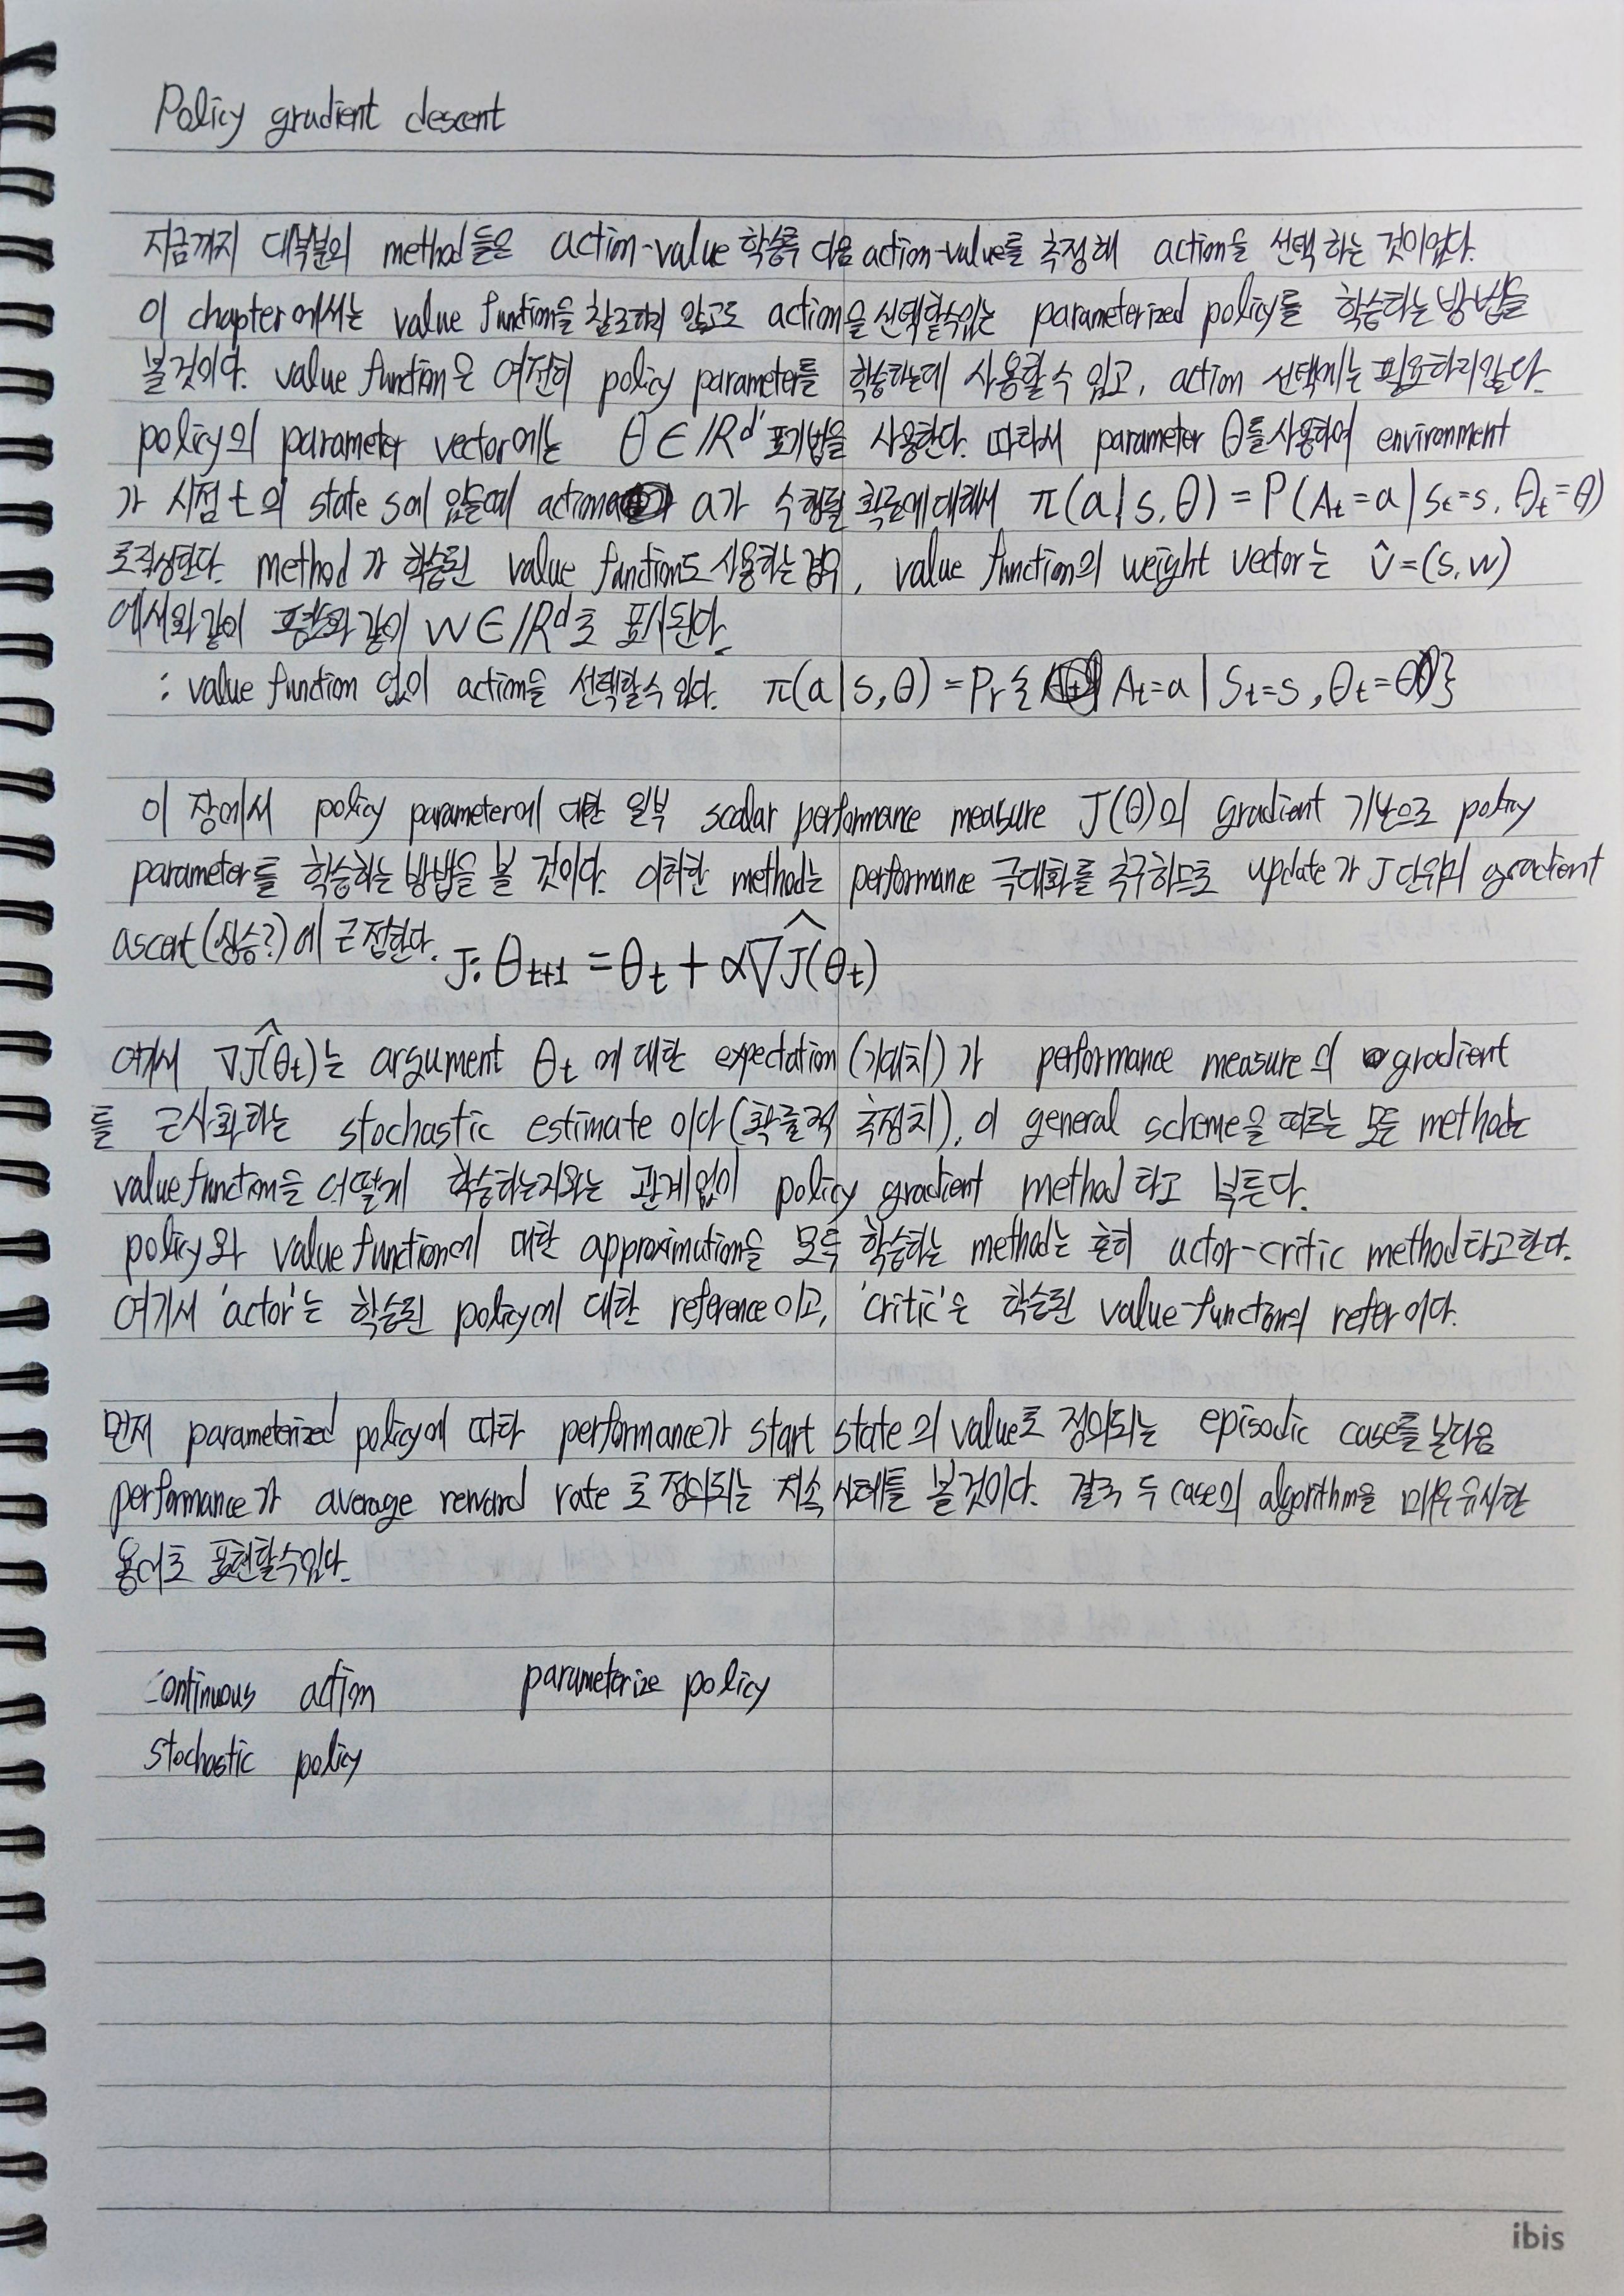 Policy gradient descent
지금까지 대부분의 method들은 action-value 학습후 다음 action-value를 추정해 action을 선택 하는 것이었다.
이 chapter에서는 value function을 참조하지 않고도 action을 선택할수있는 parameterized policy를 학습하는 방법을
볼것이다. value function은 여전히 policy parameter를 학습하는데 사용할 수 있고, action 선택에는 필요하지않다.
policy의 parameter vector에는 θ∈ℝᵈ' 표기법을 사용한다. 따라서 parameter θ를 사용하여 environment
가 시점 t의 state s에 있을때 action a가 수행될 확률에대해서 π(a|s,θ) = P(At=a|St=s, θt=θ)
로작성한다. method가 학습된 value function도 사용하는경우, value function의 weight vector는 v̂=(s,w)
에서와같이 평소와 같이 w∈ℝᵈ로 표시된다.
: value function 없이 action을 선택할수 있다. π(a|s,θ) = Pr{At=a|St=s, θt=θ}
이 장에서 policy parameter에 대한 일부 scalar performance measure J(θ)의 gradient 기반으로 policy
parameter를 학습하는 방법을 볼 것이다. 이러한 method는 performance 극대화를 추구하므로 update가 J 단위의 gradient
ascent(상승?)에 근접한다. J: θt+1 = θt + α∇Ĵ(θt)
여기서 ∇Ĵ(θt)는 argument θt에 대한 expectation(기대치)가 performance measure의 gradient
를 근사화하는 stochastic estimate 이다(확률적 추정치), 이 general scheme을 따르는 모든 method는
value function을 어떻게 학습하는지와는 관계없이 policy gradient method라고 부른다.
policy와 value function에 대한 approximation을 모두 학습하는 method는 흔히 actor-critic method라고한다.
여기서 'actor'는 학습된 policy에 대한 reference이고, 'critic'은 학습된 value-function의 refer이다.
먼저 parameterized policy에 따라 performance가 start state의 value로 정의되는 episodic case를 본다음
performance가 average reward rate로 정의되는 지속 사례를 볼것이다. 결국 두 case의 algorithm을 매우유사한
용어로 표현할수있다.
continuous action parameterize policy
stochastic policy
ibis